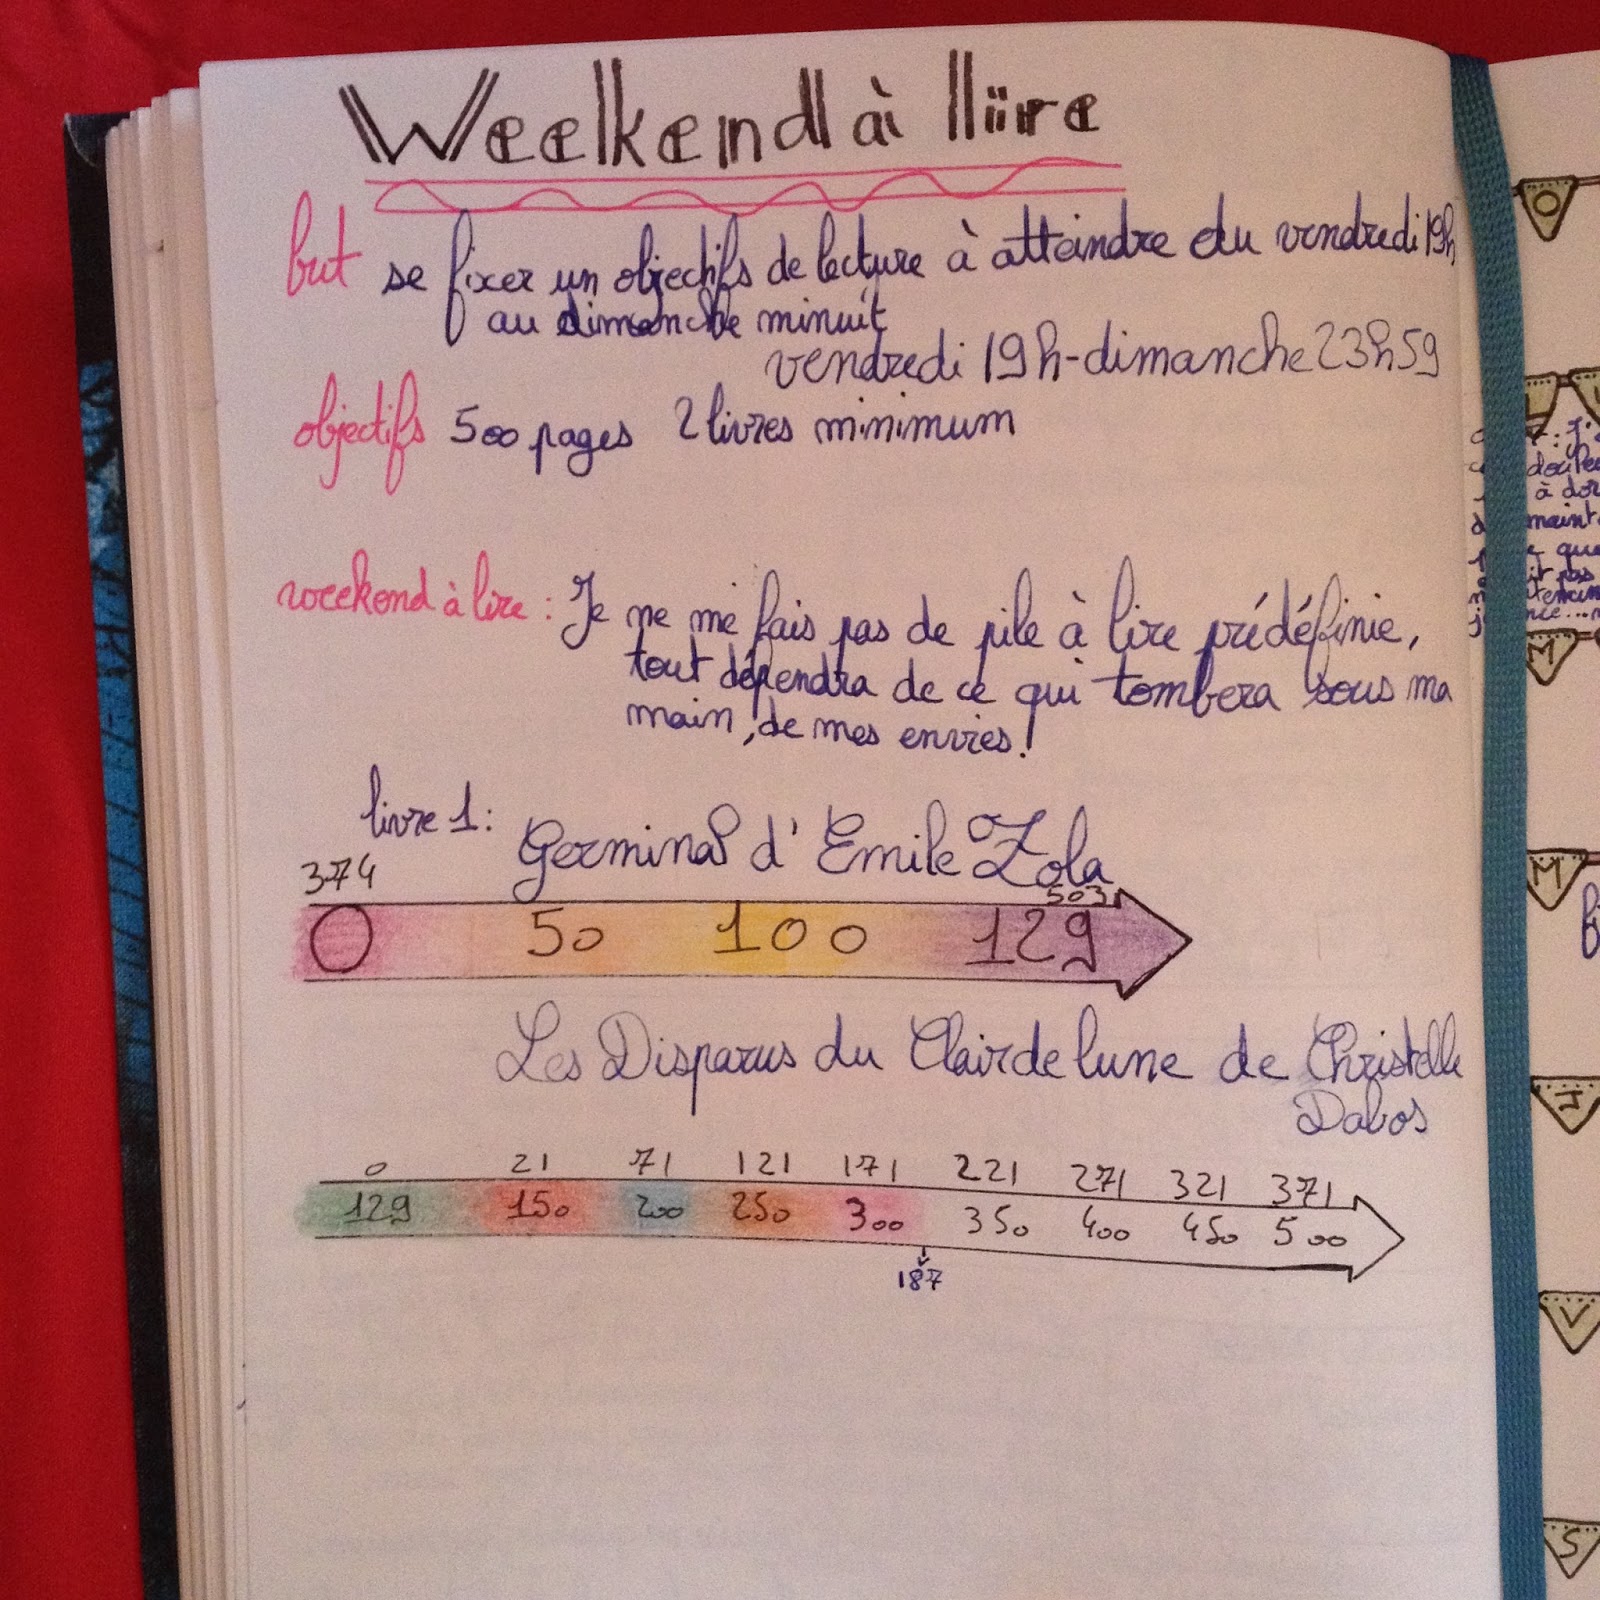 Weekend à lire
but se fixer un objectifs de lecture à atteindre du vendredi 19h
au dimanche minuit
vendredi 19h-dimanche 23h59
objectifs 500 pages 2 livres minimum
weekend à lire : Je ne me fais pas de pile à lire prédéfinie,
tout dépendra de ce qui tombera sous ma
main, de mes envies!
livre 1: Germinal d'Emile Zola
374 503
0 50 100 129
Les Disparus du Clairdelune de Christelle
Dabos
0 21 71 121 171 221 271 321 371
129 150 200 250 300 350 400 450 500
187
O
M
M
J
V
S